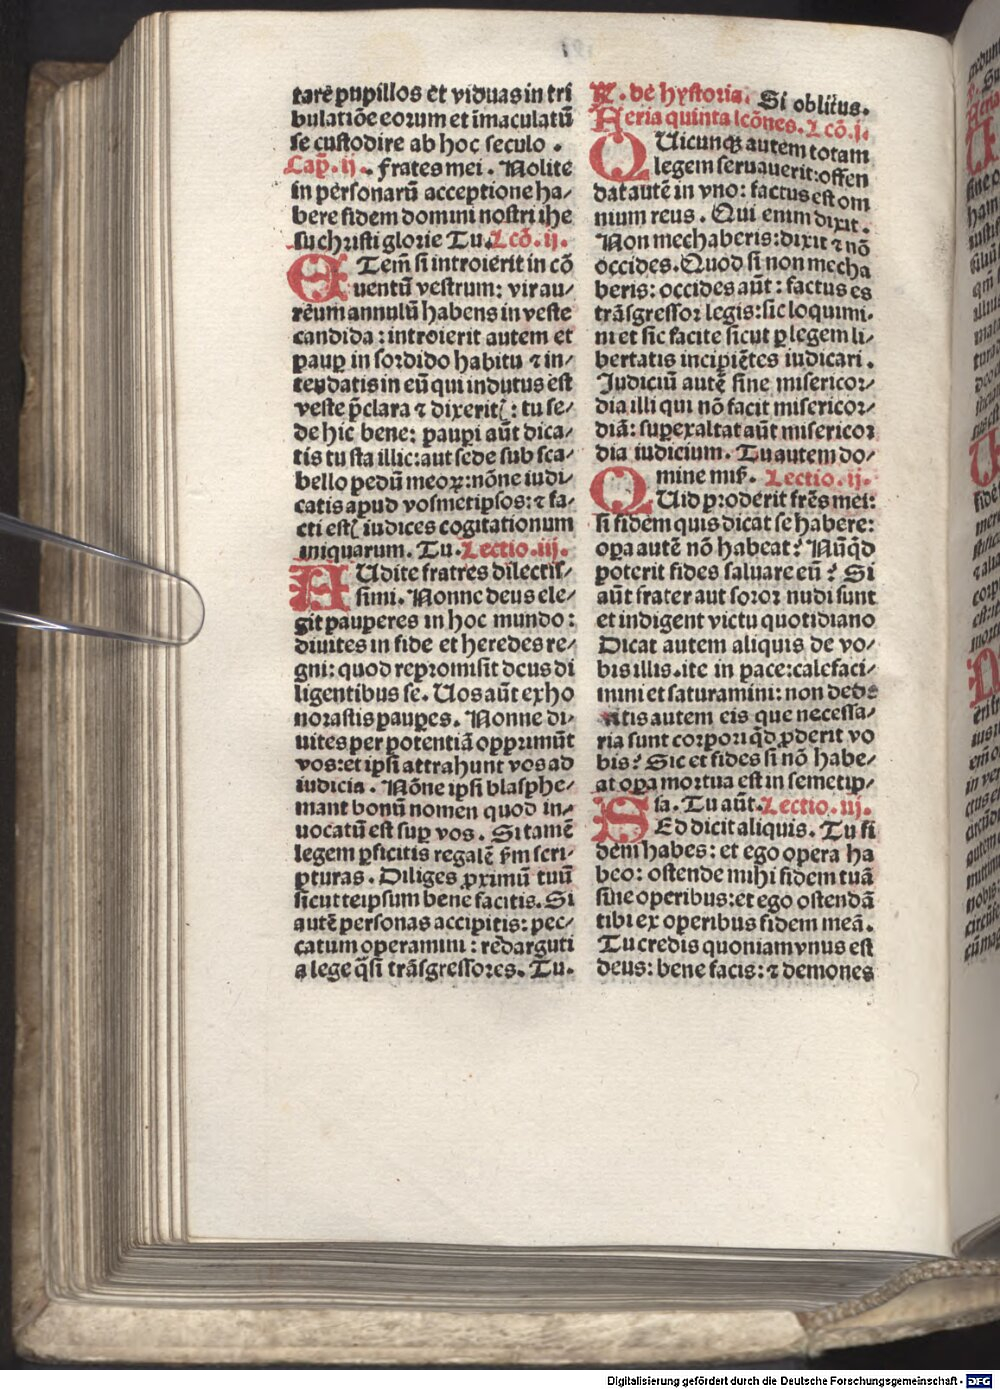 tarē pupillos et viduas in tri
bulatiōe eorum et īmaculatū
se custodire ab hoc seculo .
Cap̄. ij . Fratres mei . Nolite
in personarū acceptione ha⸗
bere fidem domini nostri ihe
su christi glorie Tu. Lcō. ij.
ETem̄ si introierit in cō
uentū vestrum: vir au⸗
reum annulū habens in veste
candida : introierit autem et
paup̱ in sordido habitu ⁊ in⸗
tendatis in eū qui indutus est
veste p̄clara ⁊ dixeritꝭ : tu se⸗
de hic bene: paup̱i aūt dica⸗
tis tu sta illic: aut sede sub sca⸗
bello pedū meoꝝ: nōne iudi⸗
catis apud vosmetip̄sos: ⁊ fa⸗
cti estꝭ iudices cogitationum
iniquarum. Tu. Lectio. iij.
AUdite fratres dilectis⸗
simi. Nonne deus ele⸗
git pauperes in hoc mundo:
diuites in fide et heredes re⸗
gni: quod repromisit deus di
ligentibus se. Uos aūt exho
norastis paup̱es. Nonne di⸗
uites per potentiā opprimūt
vos: et ip̄si attrahunt vos ad
iudicia. Nōne ip̄si blasphe⸗
mant bonū nomen quod in⸗
uocatū est sup̱ vos . Si tamē
legem ꝑficitis regalē ẜm scri⸗
pturas. Diliges ꝓximū tuū
sicut teipsum bene facitis. Si
autē personas accipitis: pec⸗
catum operamini : redarguti
a lege q̄si trāsgressores. Tu.
℟. de hystoria. Si oblitus.
Feria quinta lcōnes. Lcō. i.
QUicunqꝫ autem totam
legem seruauerit: offen
dat autē in vno: factus est om
nium reus . Qui enim dixit.
Non mechaberis: dixit ⁊ nō
occides. Quod si non mecha
beris: occides aūt : factus es
trāsgressor legis: sic loquimi⸗
ni et sic facite sicut ꝑ legem li⸗
bertatis incipiētes iudicari .
Iudiciū autē sine misericor⸗
dia illi qui nō facit misericor⸗
diā: sup̱exaltat aūt misericor
dia iudicium. Tu autem do⸗
mine mis̄. Lectio. ij.
QUid proderit fr̄es mei:
si fidem quis dicat se habere:
op̱a autē nō habeat? Nūqd̄
poterit fides saluare eū? Si
aūt frater aut soror nudi sunt
et indigent victu quotidiano
Dicat autem aliquis de vo⸗
bis illis. ite in pace: calefaci⸗
mini et saturamini: non dede
ritis autem eis que necessa⸗
ria sunt corpori qd̄ ꝓderit vo
bis? Sic et fides si nō habe⸗
at op̱a mortua est in semetip̄⸗
sa. Tu aūt. Lectio. iij.
SEd dicit aliquis. Tu fi
dem habes: et ego opera ha
beo: ostende mihi fidem tuā
sine operibus: et ego ostendā
tibi ex operibus fidem meā.
Tu credis quoniam vnus est
deus: bene facis: ⁊ demones
Digitalisierung gefördert durch die Deutsche Forschungsgemeinschaft - DFG